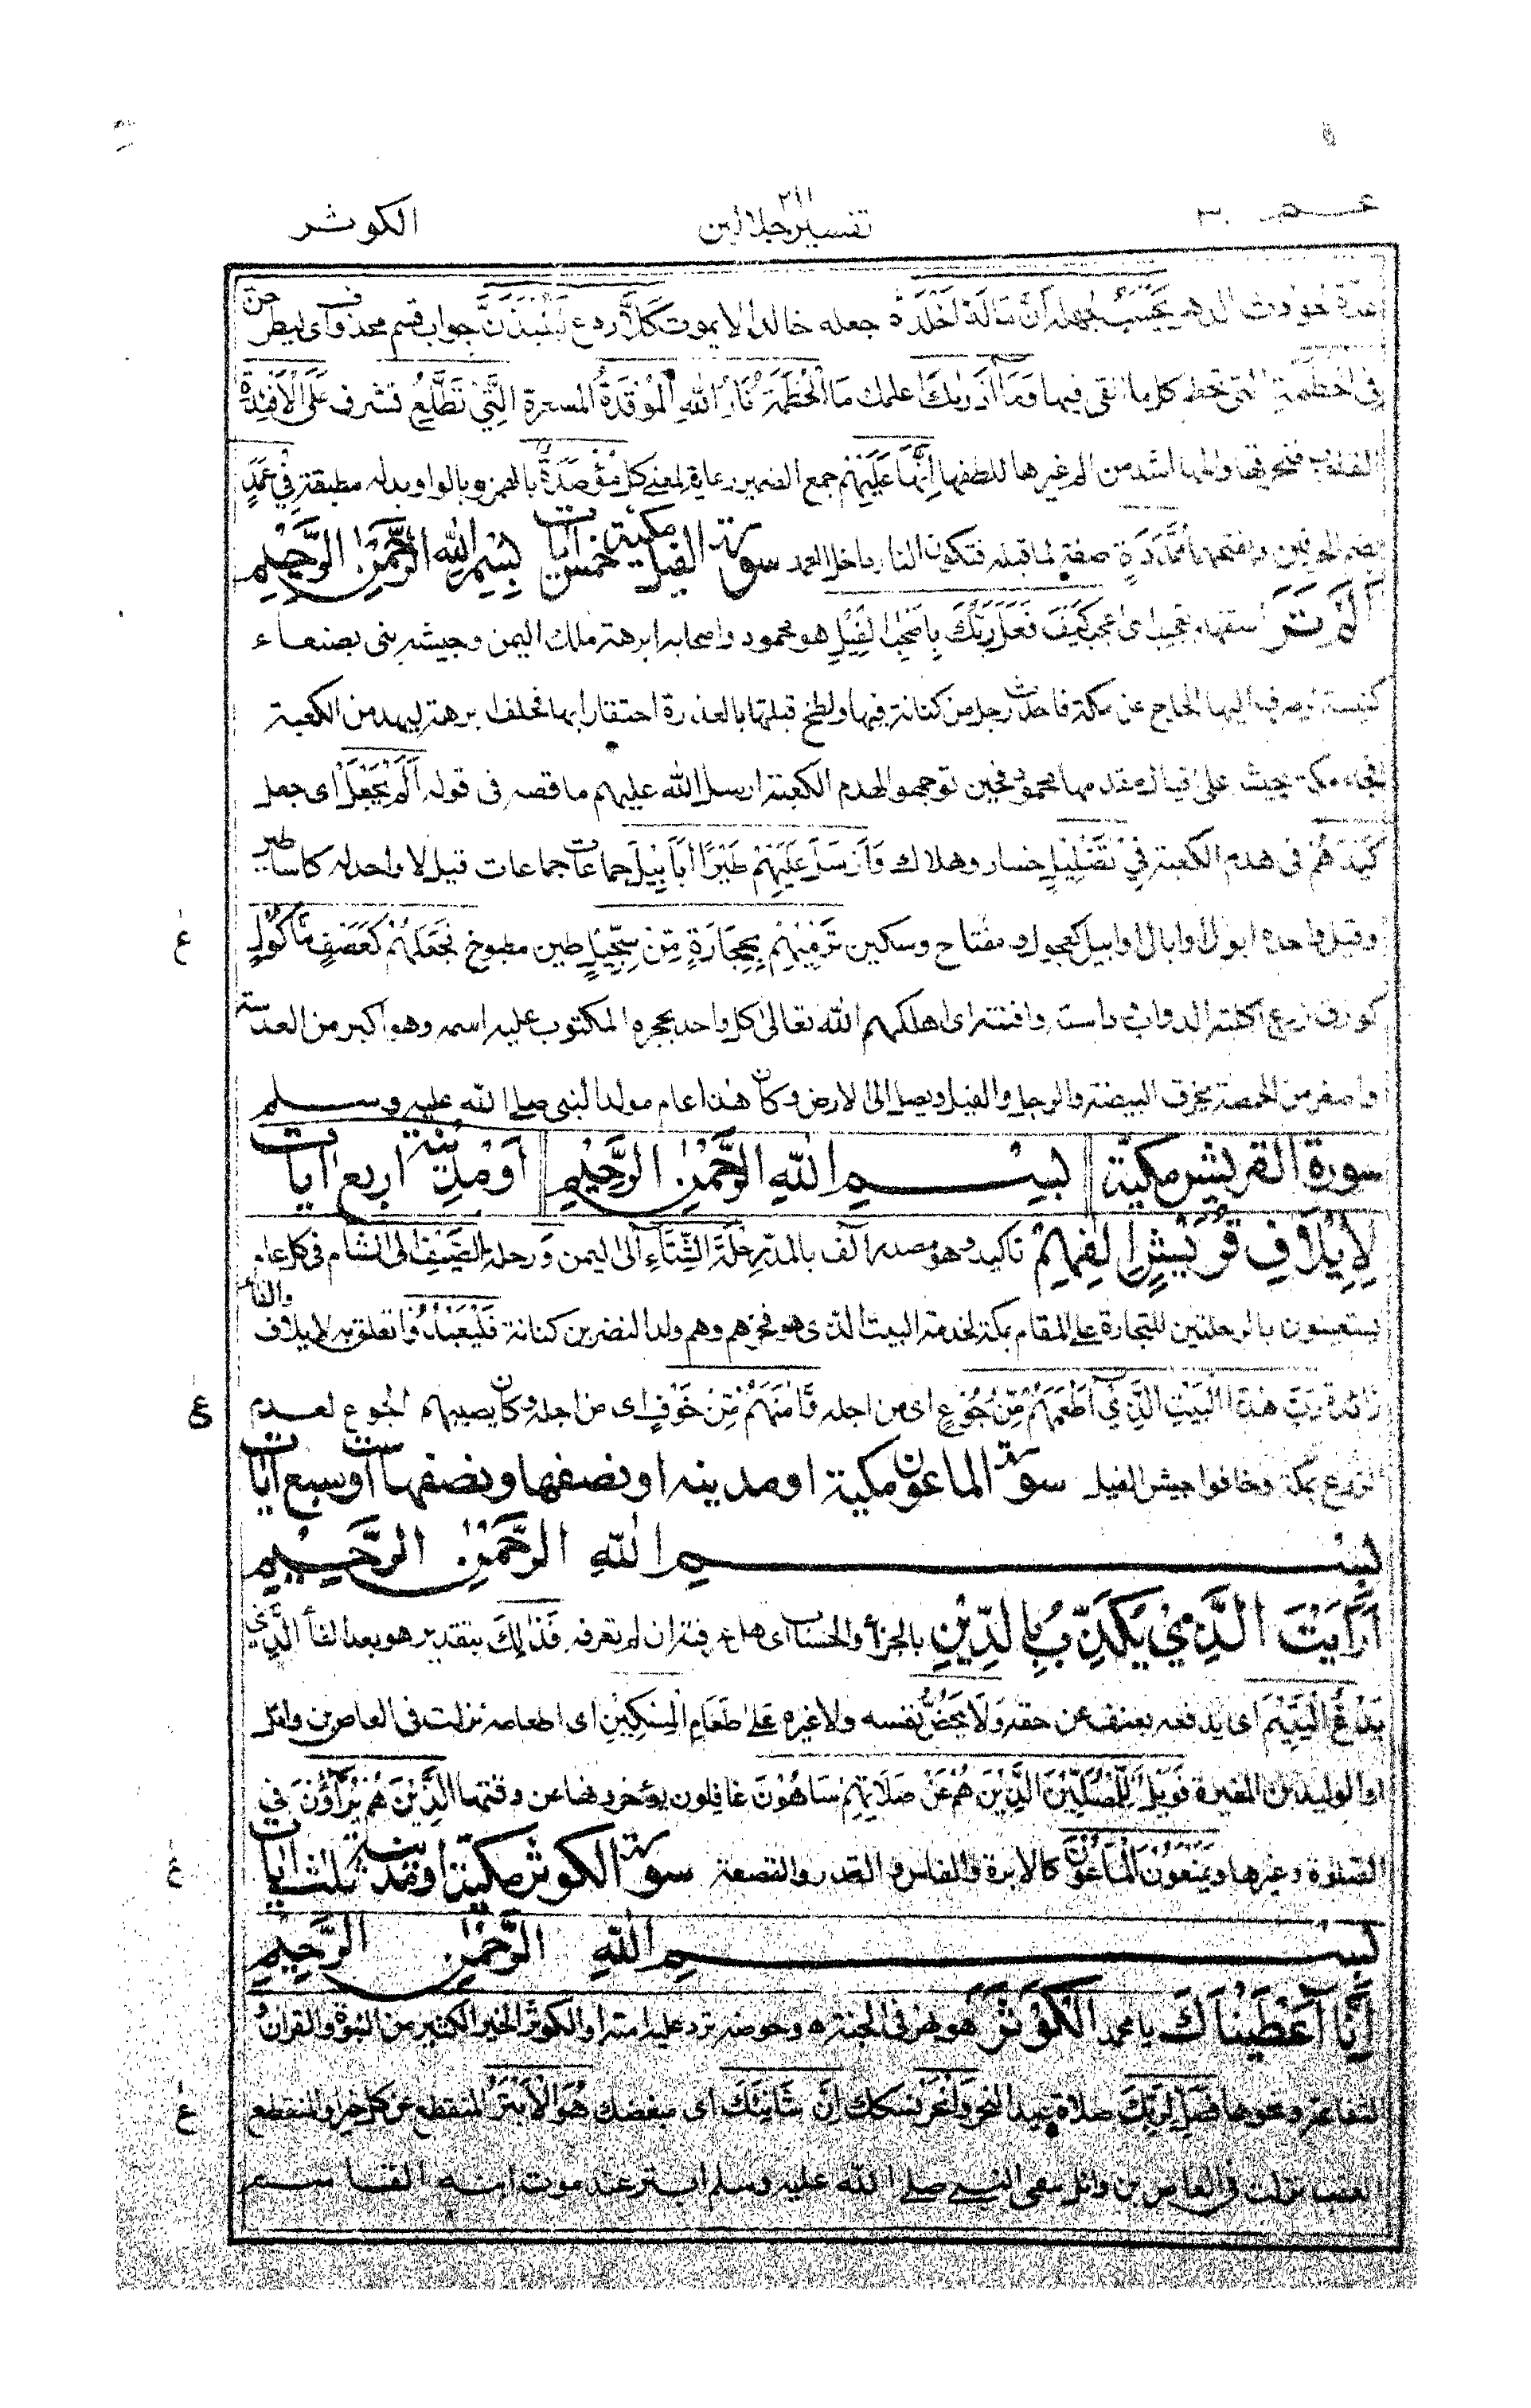 عــم ٣٠
٢١١
تفسير جلالين
الكوثر
عدة لحوادث الدهر يَحْسَبُ لجهله أَنَّ مَالَهٗ أَخْلَدَهٗ جعله خالدا لا يموت كَلَّا ردع لَيُنْبَذَنَّ جواب قسم محذوف اى ليطرحن
فِي الْحُطَمَةِ التى تحطم كل ما القى فيها وَمَا أَدْرٰىكَ اعلمك مَا الْحُطَمَةُ نَارُ اللّٰهِ الْمُوْقَدَةُ المسعرة الَّتِيْ تَطَّلِعُ تشرف عَلَى الْأَفْئِدَةِ
القلوب فتحرقها والمها اشد من الم غيرها للطفها إِنَّهَا عَلَيْهِمْ جمع الضمير رعاية لمعنى كل مُؤْصَدَةٌ بالهمزة وبالواو بدله مطبقة فِيْ عَمَدٍ
بضم الحرفين وبفتحهما مُمَدَّدَةٍ صفة لما قبله فتكون النار داخل العمد سورة الفيل مكية خمس آيات بِسْمِ اللّٰهِ الرَّحْمٰنِ الرَّحِيْمِ
أَلَمْ تَرَ استفهام تعجيب اى اعجب كَيْفَ فَعَلَ رَبُّكَ بِأَصْحٰبِ الْفِيْلِ هو محمود واصحابه ابرهة ملك اليمن وجيشه بنى بصنعاء
كنيسة ليصرف اليها الحاج عن مكة فاحدث رجل من كنانة فيها ولطخ قبلتها بالعذرة احتقارا بها فحلف ابرهة ليهدمن الكعبة
فجاء مكة بجيش على افيال مقدمها محمود فحين توجهوا لهدم الكعبة ارسل الله عليهم ما قصه فى قوله أَلَمْ يَجْعَلْ اى جعل
كَيْدَهُمْ فى هدم الكعبة فِيْ تَضْلِيْلٍ خسار وهلاك وَأَرْسَلَ عَلَيْهِمْ طَيْرًا أَبَابِيْلَ جماعات جماعات قيل لا واحد له كاساطير
وقيل واحده ابول او ابال او ابيل كعجول ومفتاح وسكين تَرْمِيْهِمْ بِحِجَارَةٍ مِّنْ سِجِّيْلٍ طين مطبوخ فَجَعَلَهُمْ كَعَصْفٍ مَّأْكُوْلٍ
ع
كورق زرع اكلته الدواب وداسته وافنته اى اهلكهم الله تعالى كل واحد بحجره المكتوب عليه اسمه وهو اكبر من العدسة
واصغر من الحمصة يخرق البيضة والرجل والفيل ويصل الى الارض وكان هذا عام مولد النبى صلى الله عليه وسلم
سورة القريش مكية بِسْمِ اللّٰهِ الرَّحْمٰنِ الرَّحِيْمِ او مدنية اربع آيات
لِإِيْلَافِ قُرَيْشٍ إِلٰفِهِمْ تاكيد وهو مصدر آلف بالمد رِحْلَةَ الشِّتَاءِ الى اليمن وَ رحلة الصَّيْفِ الى الشام فى كل عام
يستعينون بالرحلتين للتجارة على المقام بمكة لخدمة البيت الذى هو فخرهم وهم ولد النضر بن كنانة فَلْيَعْبُدُوْا تعلق به لايلاف والفاء
زائدة رَبَّ هٰذَا الْبَيْتِ الَّذِيْ أَطْعَمَهُمْ مِّنْ جُوْعٍ اى من اجله وَّآمَنَهُمْ مِّنْ خَوْفٍ اى من اجله وكان يصيبهم الجوع لعدم
ع
الزرع بمكة وخافوا جيش الفيل سورة الماعون مكية او مدينه او نصفها ونصفها ست او سبع آيات
بِسْمِ اللّٰهِ الرَّحْمٰنِ الرَّحِيْمِ
أَرَأَيْتَ الَّذِيْ يُكَذِّبُ بِالدِّيْنِ بالجزاء والحساب اى هل عرفته ان لم تعرفه فَذٰلِكَ بتقدير هو بعد الفاء الَّذِيْ
يَدُعُّ الْيَتِيْمَ اى يدفعه بعنف عن حقه وَلَا يَحُضُّ نفسه ولا غيره عَلٰى طَعَامِ الْمِسْكِيْنِ اى اطعامه نزلت فى العاص بن وائل
او الوليد بن المغيرة فَوَيْلٌ لِّلْمُصَلِّيْنَ الَّذِيْنَ هُمْ عَنْ صَلَاتِهِمْ سَاهُوْنَ غافلون يؤخرونها عن وقتها الَّذِيْنَ هُمْ يُرَآؤُنَ فى
الصلوة وغيرها وَيَمْنَعُوْنَ الْمَاعُوْنَ كالابرة والفاس والقدر والقصعة سورة الكوثر مكية او مدنية ثلث آيات
ع
بِسْمِ اللّٰهِ الرَّحْمٰنِ الرَّحِيْمِ
إِنَّا أَعْطَيْنَاكَ يا محمد الْكَوْثَرَ هو نهر فى الجنة هو حوضه ترد عليه امته او الكوثر الخير الكثير من النبوة والقرآن
الشفاعة ونحوها فَصَلِّ لِرَبِّكَ صلاة عيد النحر وَانْحَرْ نسكك إِنَّ شَانِئَكَ اى مبغضك هُوَ الْأَبْتَرُ المنقطع عن كل خير او المنقطع
ع
العقب نزلت فى العاص بن وائل سمى النبى صلى الله عليه وسلم ابتر عند موت ابنه القاسم